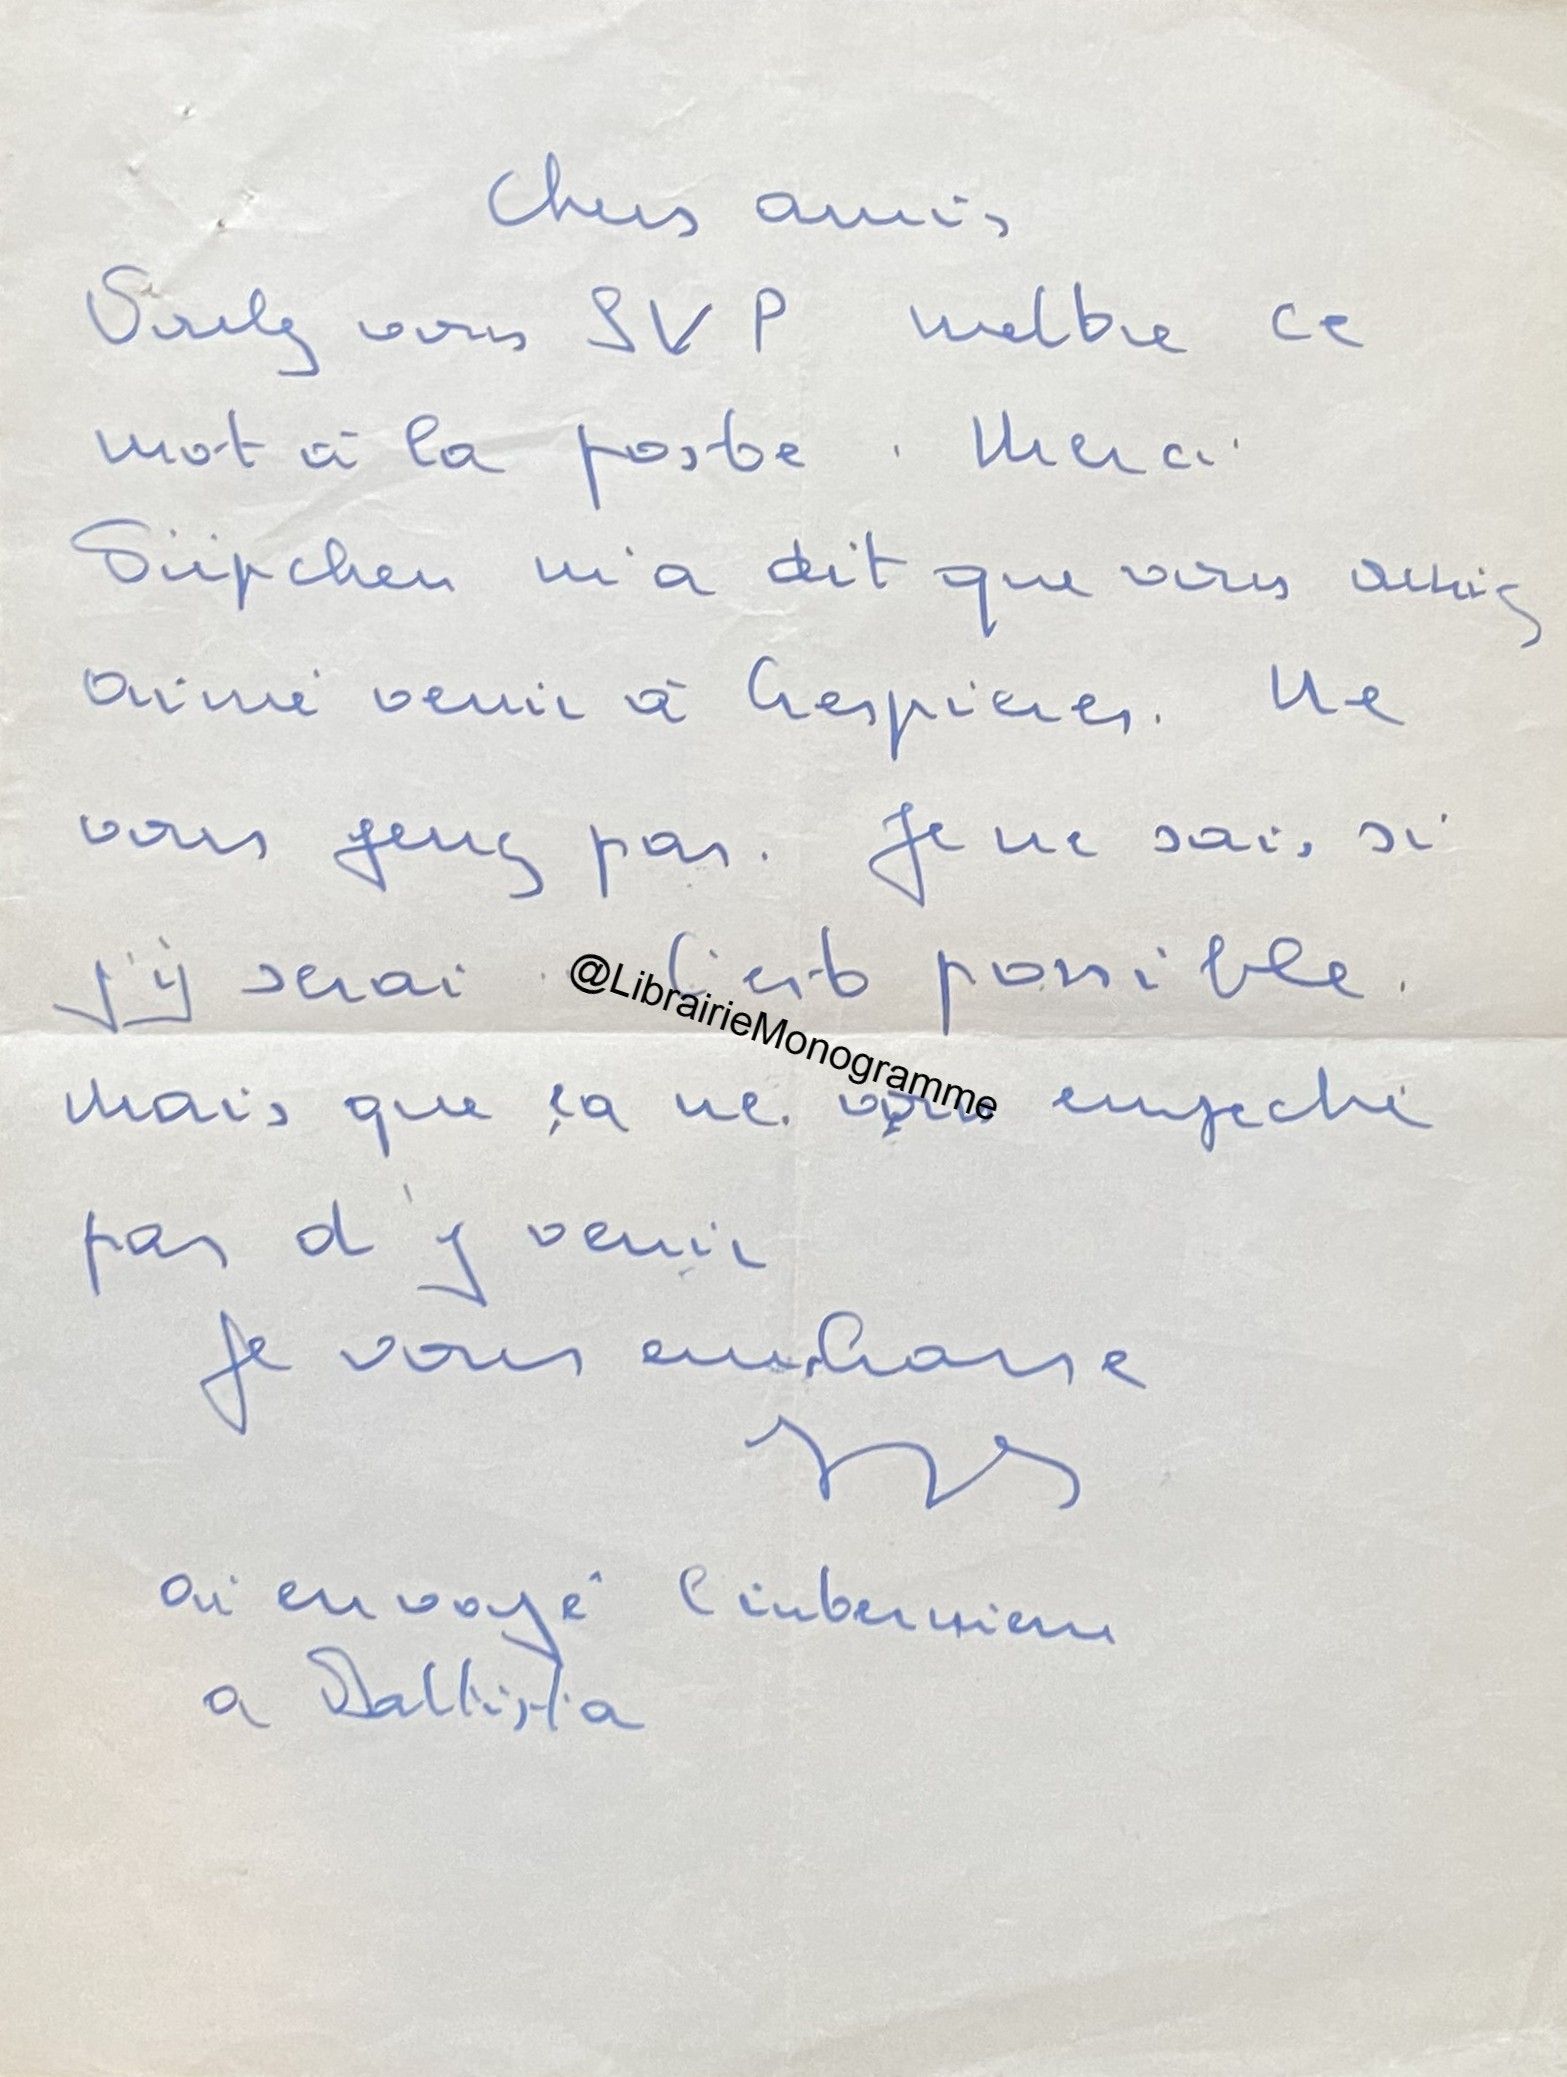 Chers amis
Voulez vous SVP mettre ce
mot à la poste. Merci.
m'a dit que vous auriez
aimé venir à Crespières. Ne
vous genez pas. Je ne sais si
j'y serai. C'est possible.
@LibrairieMonogramme
mais que ça ne vous empeche
pas d'y venir
Je vous embrasse
ai envoyé l'interview
a Battista